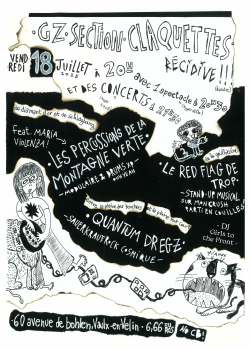 GZ SECTION CLAQUETTES
RÉCIDIVE!!!
VENDREDI 18 JUILLET À 20H
AVEC 1 SPECTACLE À 20H30
ET DES CONCERTS À 21H
feat. MARIA
VIOLENZA!
LES PERCUSSIONS DE LA
MONTAGNE VERTE
MODULAIRES & DRUMS
LE RED FLAG DE
TROP
STAND-UP MUSICAL
SUR MANCRUSH
PARTI EN COUILLES
DJ
Girls to
the Front
QUANTUM DREGZ
SAUERKRAUTROCK COSMIQUE
60 avenue de bohlen, Vaulx-en-Velin - 6,66